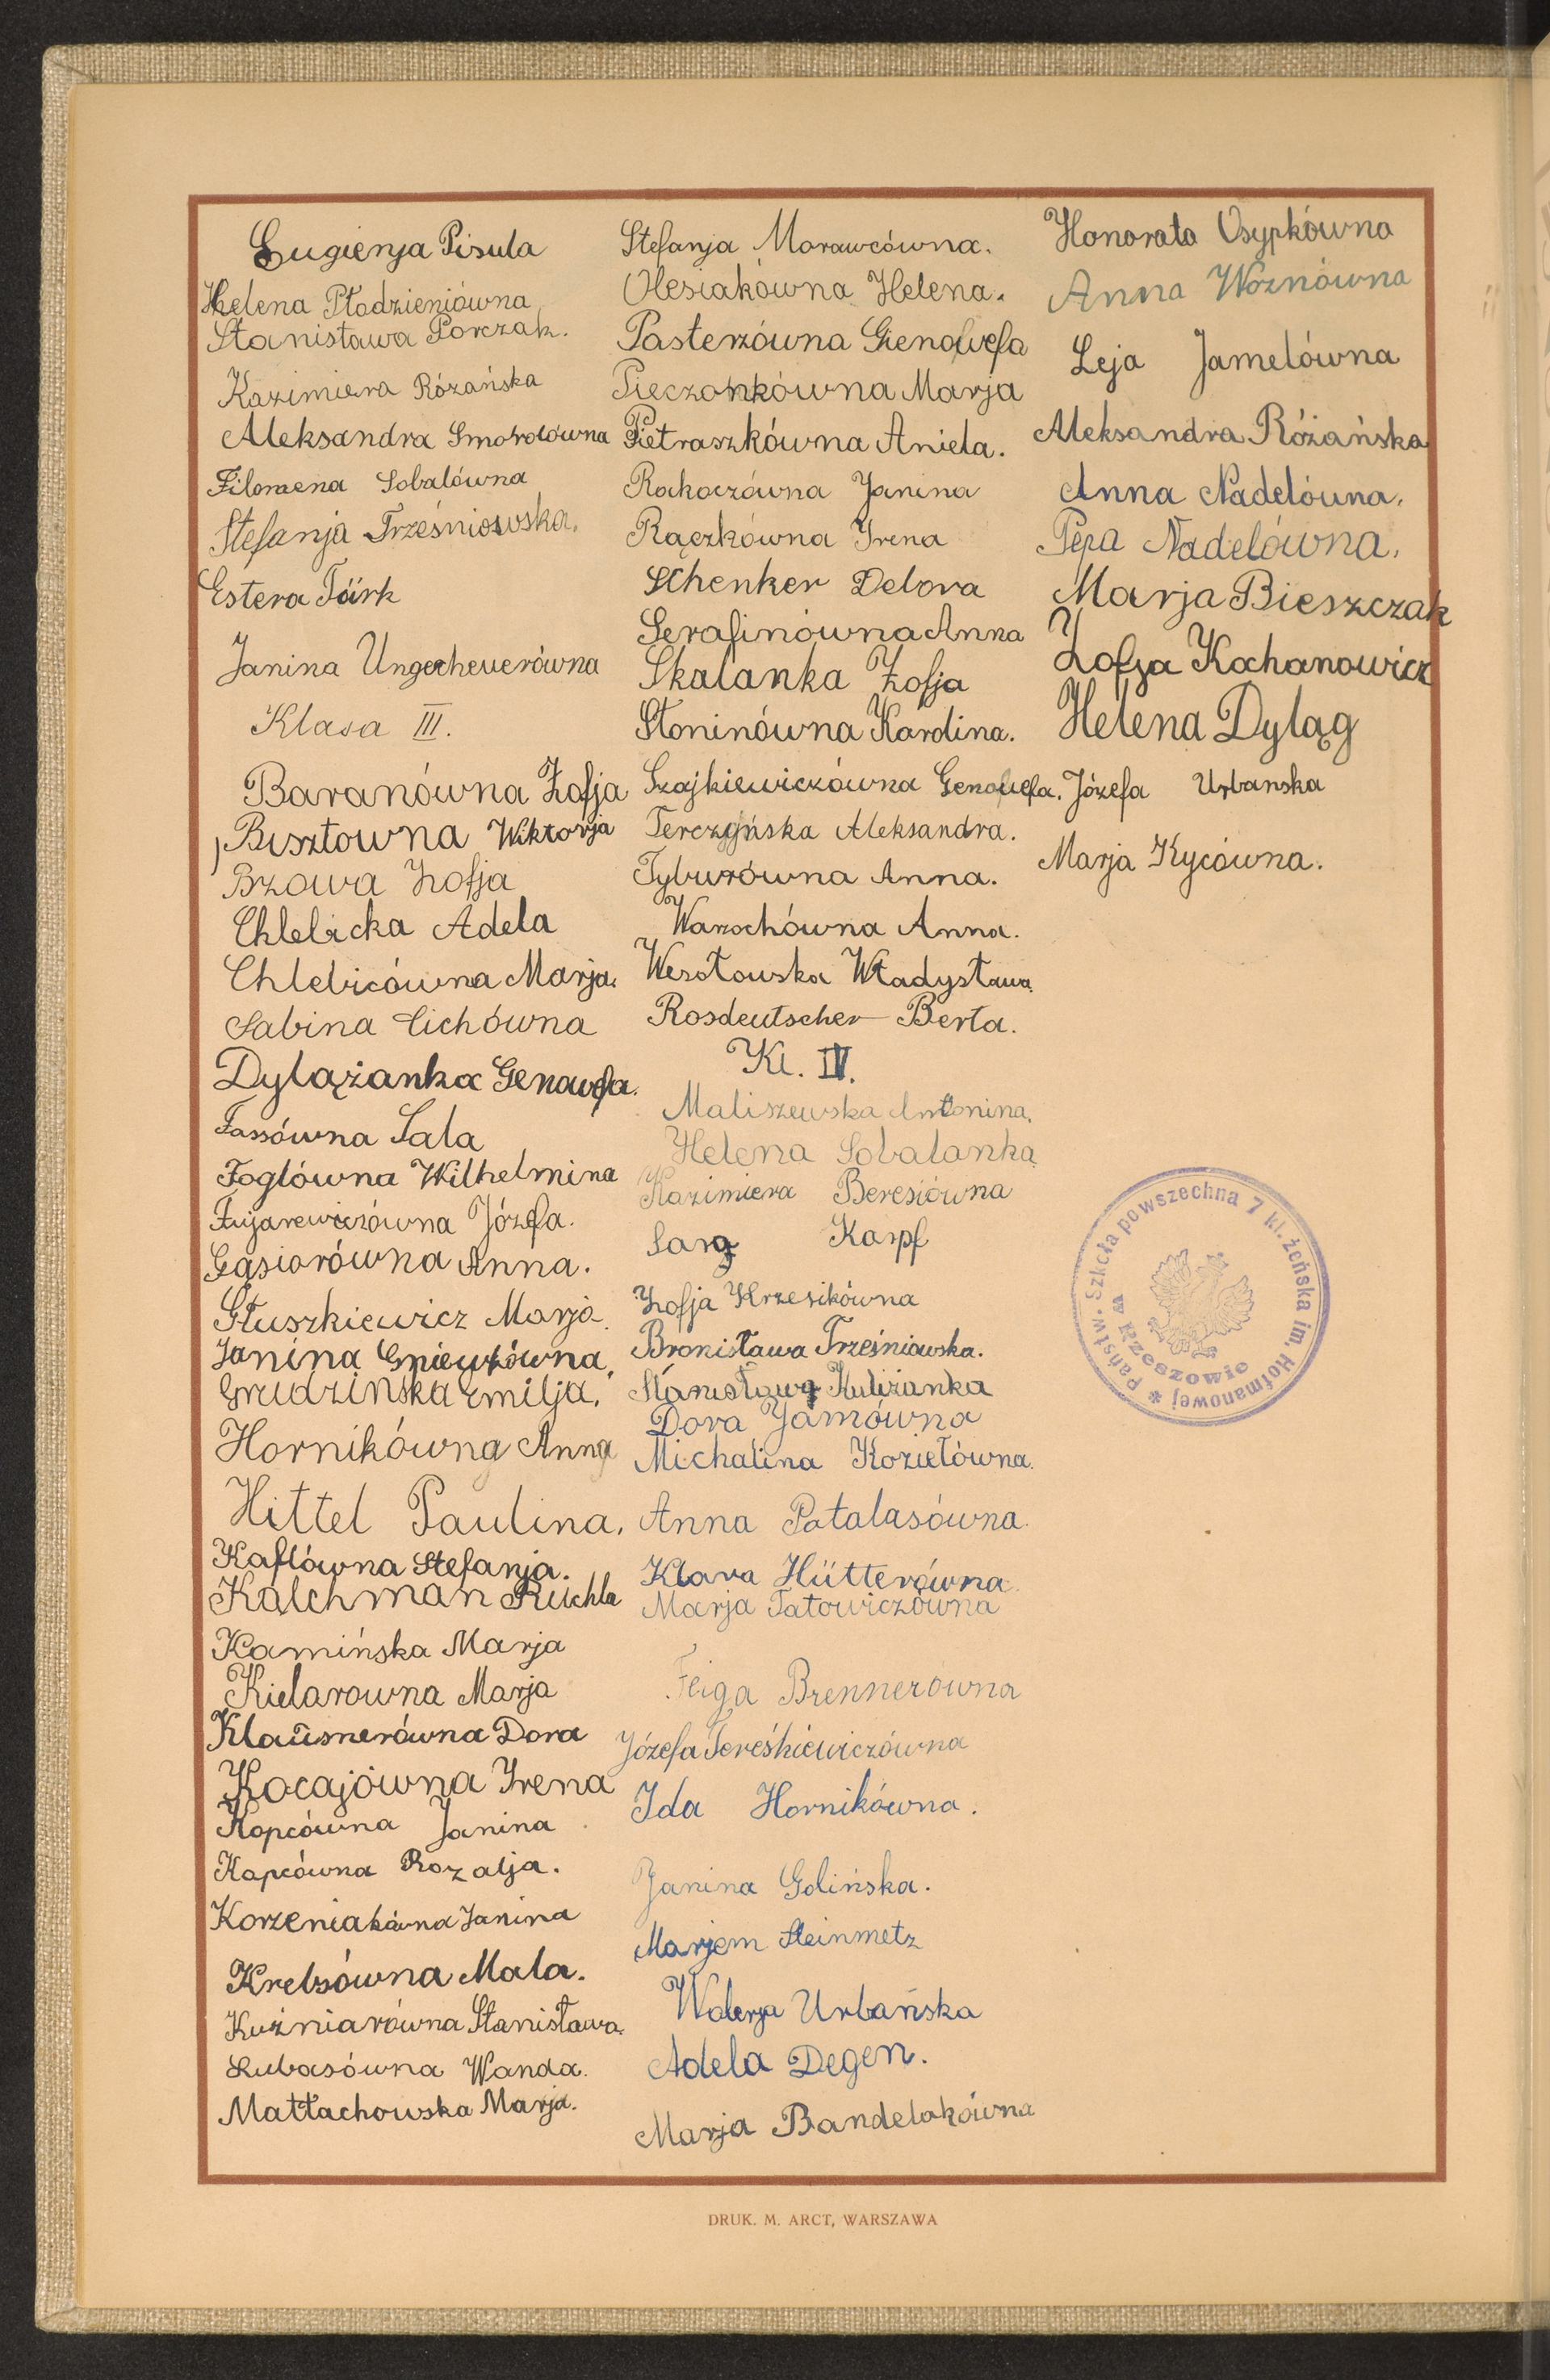 Eugienja Pisula
Helena Płodzieniówna
Stanisława Porczak.
Kazimiera Rózańska
Aleksandra Smotrołówna
Filomena Sobalówna
Stefanja Trześniowska.
Estera Türk
Janina Ungeheuerówna
Klasa III.
Baranówna Zofja
Bisztowna Wiktorja
Bzowa Zofja
Chlebicka Adela
Chlebicówna Marja.
Sabina Cichówna
Dylążanka Genowefa.
Fassówna Sala
Foglówna Wilhelmina
Fujarewiczówna Józefa.
Gąsiorówna Anna.
Głuszkiewicz Marja.
Janina Gniewkówna.
Grudzińska Emilja.
Hornikówna Anna
Hittel Paulina.
Kaflówna Stefanja.
Kalchman Ruchla
Kamińska Marja
Kielarowna Marja
Klausnerówna Dora
Kocajówna Irena
Kopcówna Janina
Kapcówna Rozalja.
Korzeniakówna Janina
Krebsówna Mala.
Kuźniarówna Stanisława.
Lubasówna Wanda.
Małłachowska Marja.
Stefanja Morawcówna.
Olesiakówna Helena.
Pasterzówna Gienowefa
Pieczonkówna Marja
Pietraszkówna Aniela.
Rakoczówna Janina
Rączkówna Irena
Schenker Debora
Serafinówna Anna
Skalanka Zofja
Słoninówna Karolina.
Szajkiewiczówna Genowefa.
Terczyńska Aleksandra.
Tyburówna Anna.
Warzochówna Anna.
Wesołowska Władysława.
Rosdeutscher Berta.
Kl. IV.
Maliszewska Antonina.
Helena Sobalanka
Kazimiera Beresiówna
Sara Karpf
Zofja Krzesikówna
Bronisława Trześniowska.
Stanisława Kulizanka
Dora Jamówna
Michalina Koziełówna.
Anna Patalasówna.
Klara Hütterówna.
Marja Tatowiczówna
Feiga Brennerówna
Józefa Tereśkiewiczówna
Ida Hornikówna.
Janina Golińska.
Marjem Steinmetz
Walerja Urbańska
Adela Degen.
Marja Bandelakówna
Honorata Osypkówna
Anna Woznówna
Leja Jamelówna
Aleksandra Różańska
Anna Nadelówna.
Pepa Nadelówna.
Marja Bieszczak
Zofja Kochanowicz
Helena Dyląg
Józefa Urbanska
Marja Kycówna.
Państw. Szkoła powszechna 7 kl. żeńska im. Hofmanowej *
w Rzeszowie
DRUK. M. ARCT, WARSZAWA